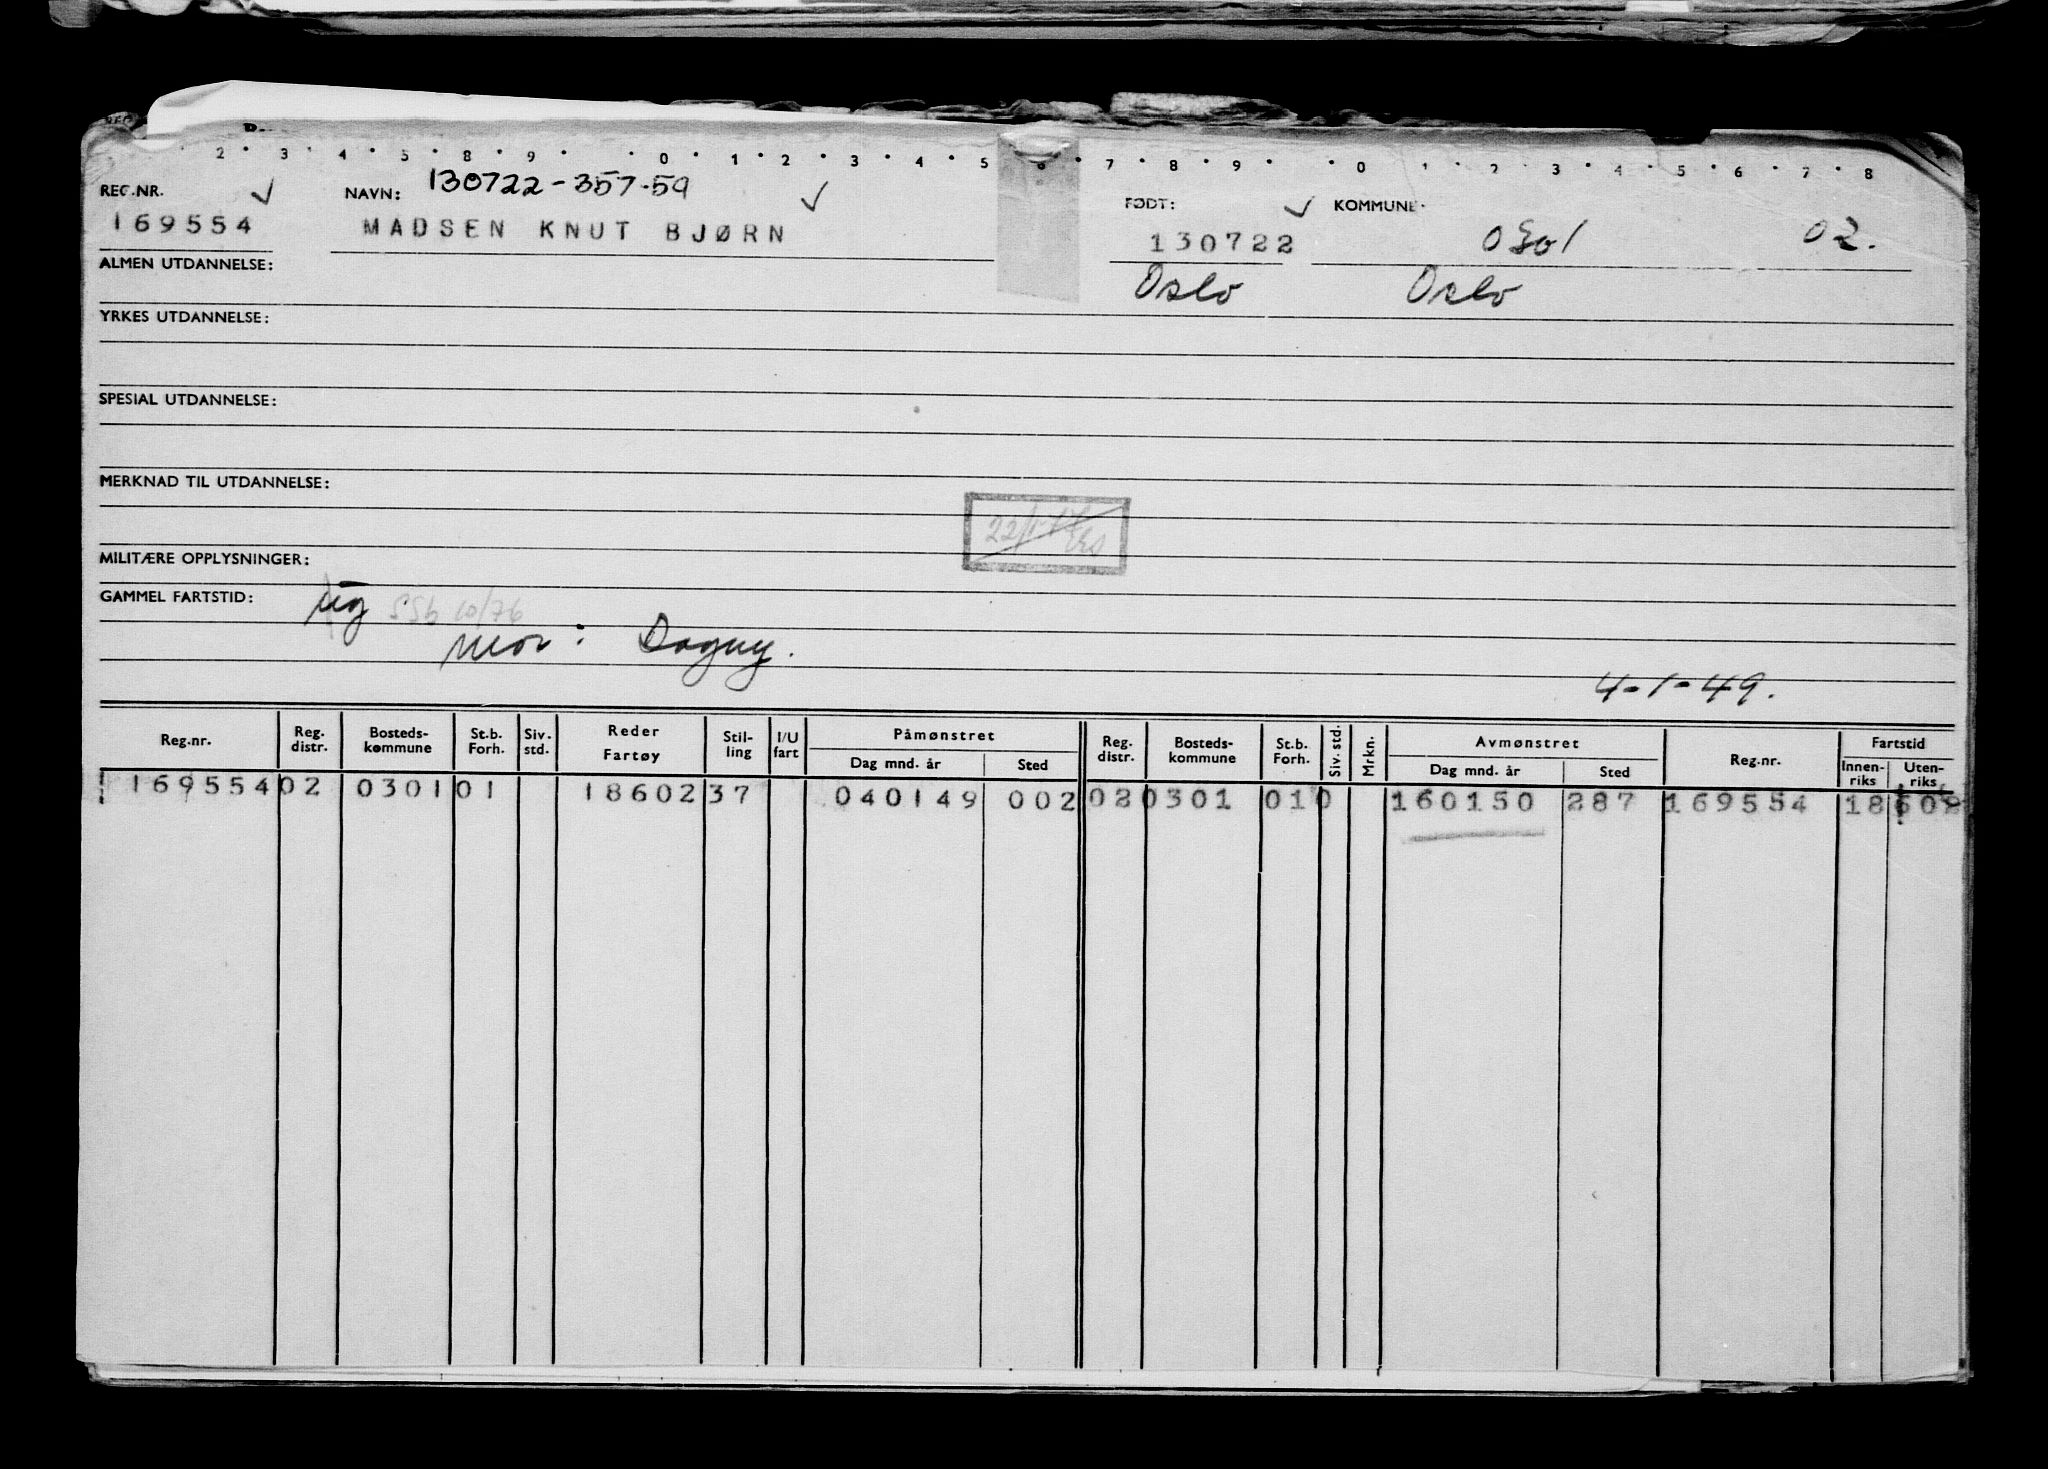 2 . 3 . 4 . 5 . 8 . 9 . . 0 . 1 . 2 . 3 . 4 . 5 . 6 . 7 . 8 . 9 . . 0 . 1 . 2 . 3 . 4 . 5 . 6 . 7 . 8
REG.NR. NAVN: 130722-357-59 FØDT: KOMMUNE:
169554 MADSEN KNUT BJØRN 130722 0301 02.
ALMEN UTDANNELSE: Oslo Oslo
YRKES UTDANNELSE:
SPESIAL UTDANNELSE:
MERKNAD TIL UTDANNELSE:
MILITÆRE OPPLYSNINGER:
GAMMEL FARTSTID: SSb 10/76
Mor: Dagny.
4-1-49.
Reg.nr. Reg. distr. Bosteds-kommune St.b. Forh. Siv. std. Reder Fartøy Stil-ling I/U fart Påmønstret Dag mnd. år Sted Reg. distr. Bosteds-kommune St.b. Forh. Siv. std. Mrkn. Avmønstret Dag mnd. år Sted Reg.nr. Fartstid Innen-riks Uten-riks
169554 02 0301 01 18602 37 040149 002 02 0301 01 0 160150 287 169554 18 602